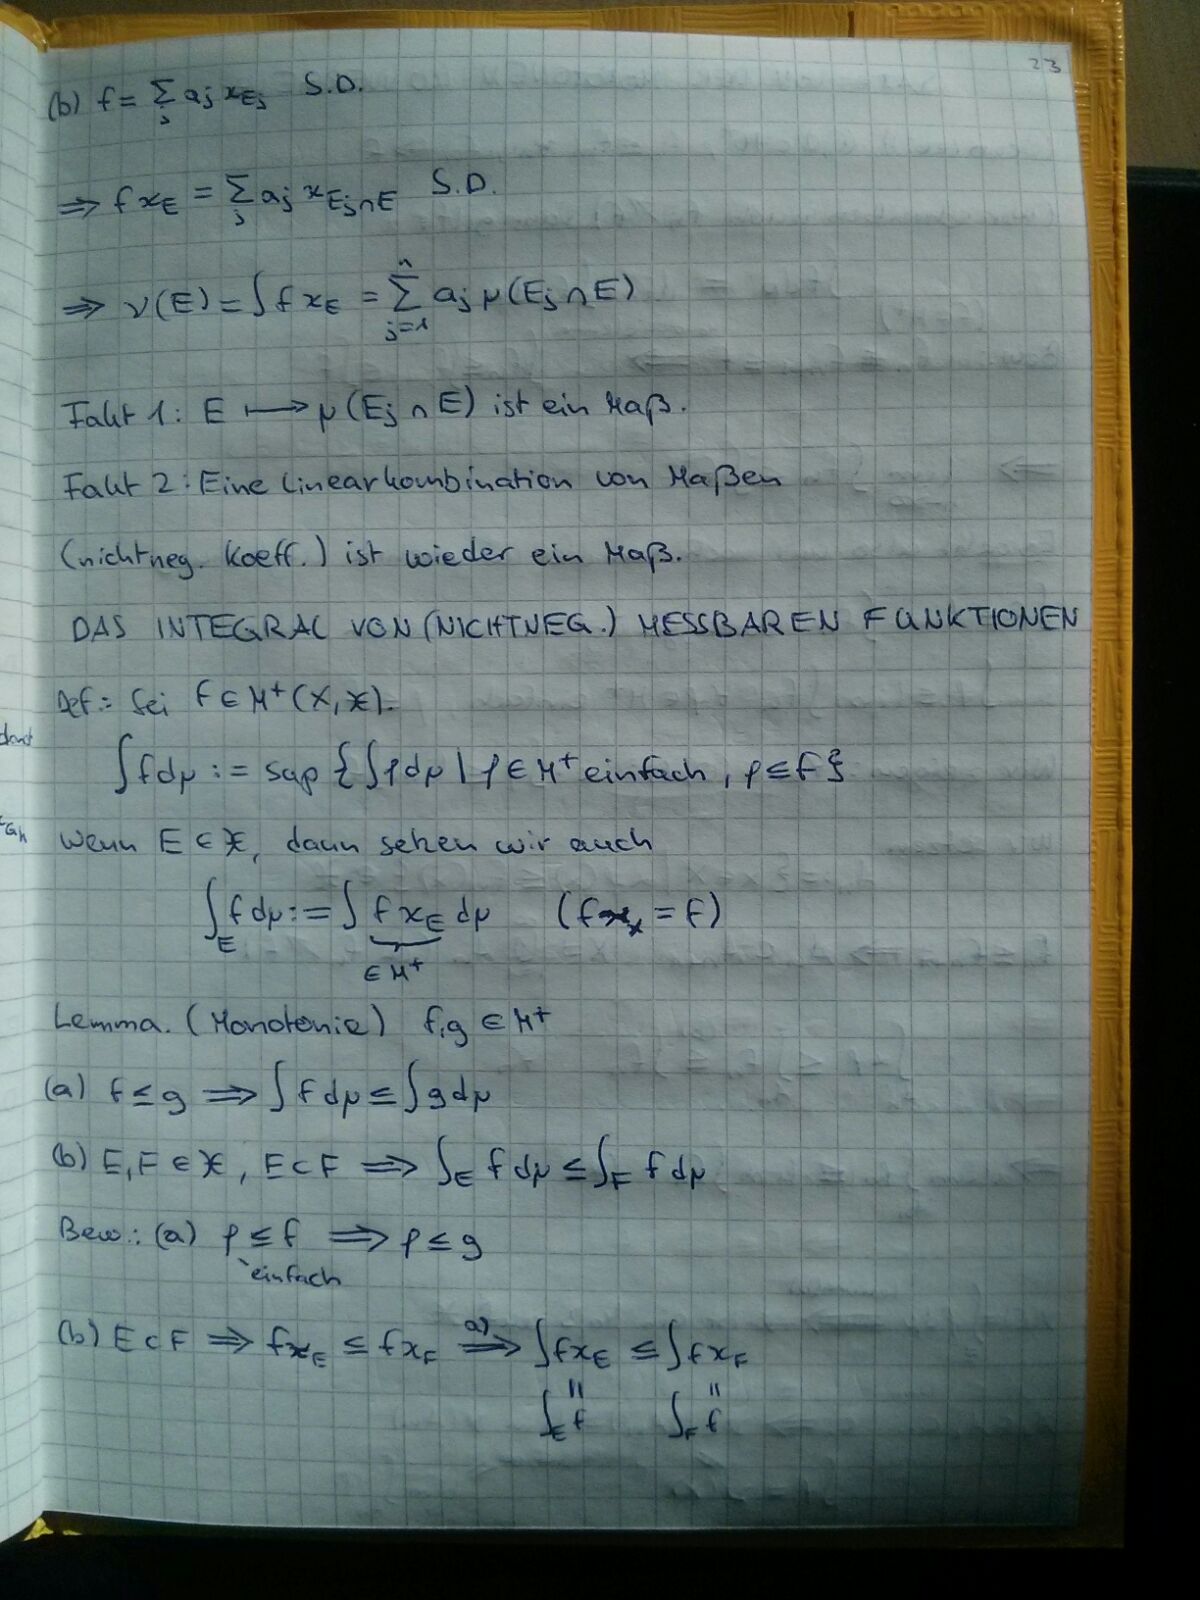 23
(b) f = Σ_j a_j χ_{E_j} S.D.
⟹ f χ_E = Σ_j a_j χ_{E_j ∩ E} S.D.
⟹ ν(E) = ∫ f χ_E = Σ_{j=1}^n a_j μ(E_j ∩ E)
Fakt 1: E ⟼ μ(E_j ∩ E) ist ein Maß.
Fakt 2: Eine Linearkombination von Maßen
(nichtneg. Koeff.) ist wieder ein Maß.
DAS INTEGRAL VON (NICHTNEG.) MESSBAREN FUNKTIONEN
Def.: Sei f ∈ M⁺(X, 𝒳).
∫ f dμ := sup { ∫ φ dμ | φ ∈ M⁺ einfach, φ ≤ f }
Wenn E ∈ 𝒳, dann setzen wir auch
∫_E f dμ := ∫ f χ_E dμ (f χ_X = f)
∈ M⁺
Lemma. (Monotonie) f, g ∈ M⁺
(a) f ≤ g ⟹ ∫ f dμ ≤ ∫ g dμ
(b) E, F ∈ 𝒳, E ⊂ F ⟹ ∫_E f dμ ≤ ∫_F f dμ
Bew.: (a) φ ≤ f ⟹ φ ≤ g
einfach
(b) E ⊂ F ⟹ f χ_E ≤ f χ_F ⟹^{a)} ∫ f χ_E ≤ ∫ f χ_F
= =
∫_E f ∫_F f